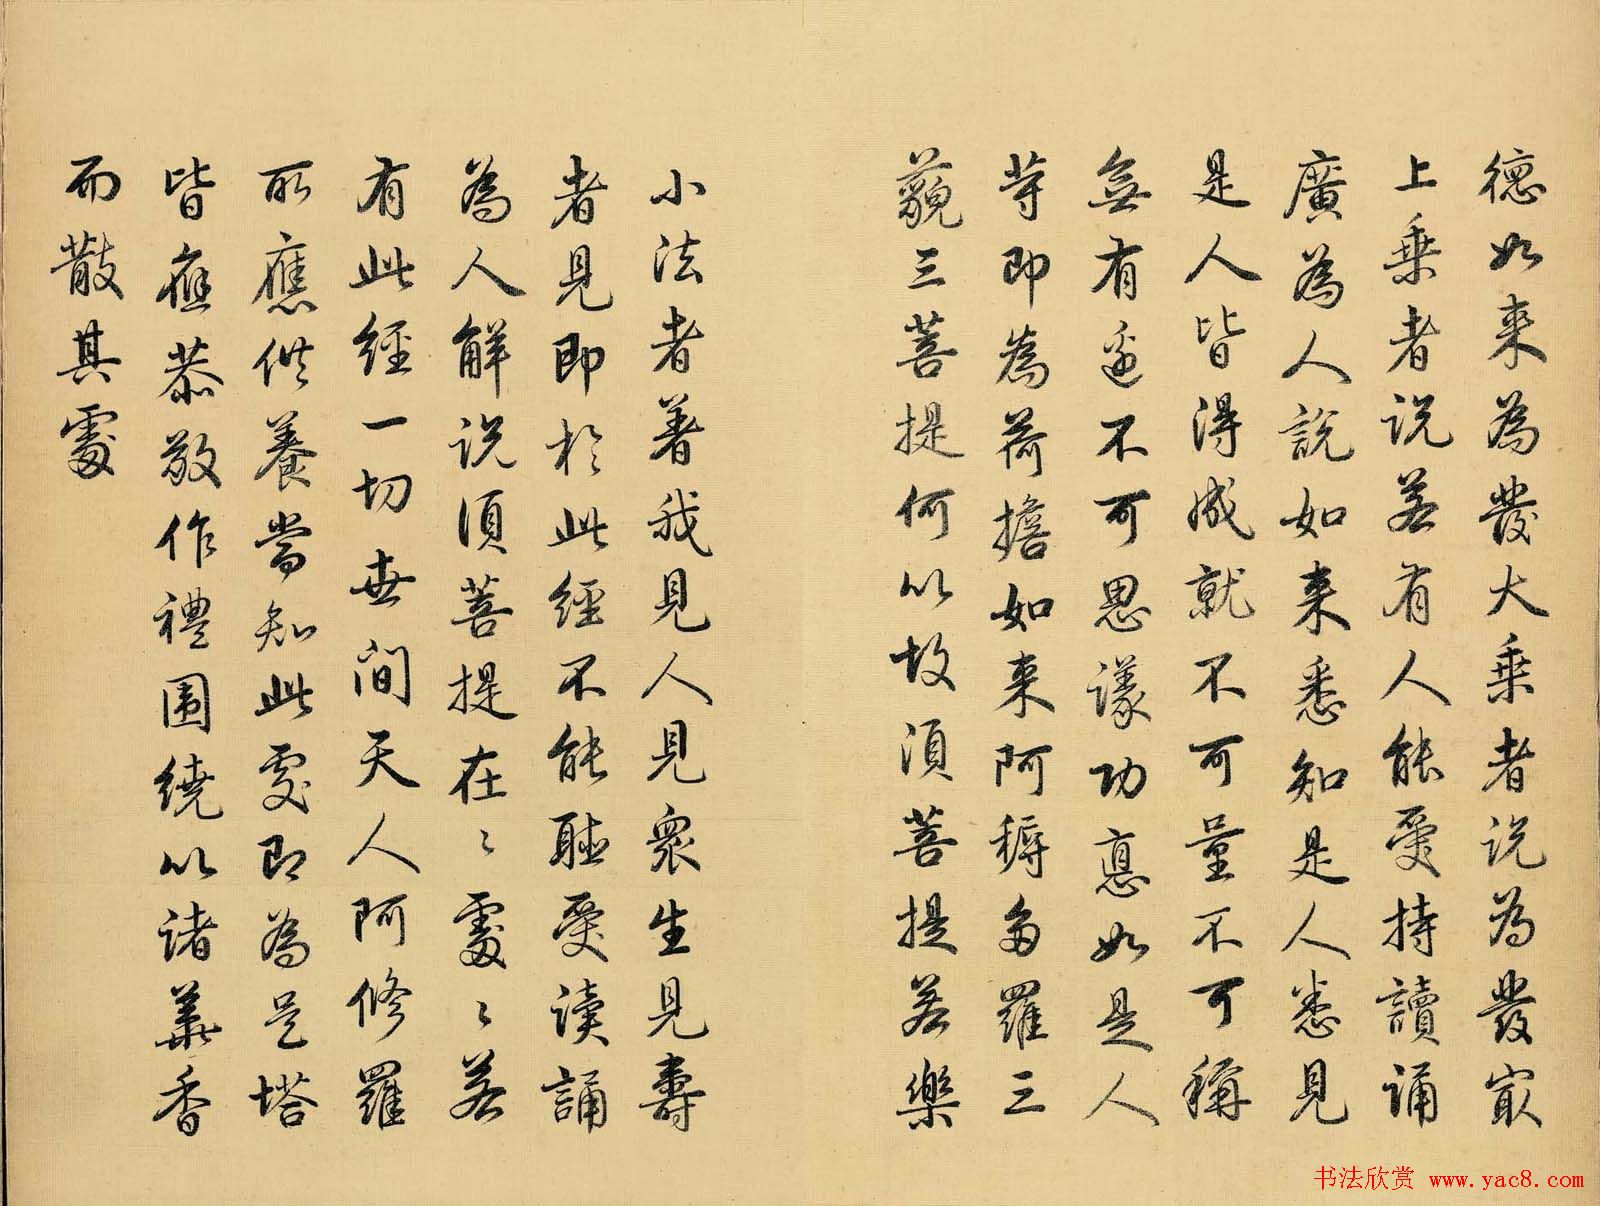 德如来為發大乗者说為發冣
上乗者说若有人能受持讀誦
廣為人說如来悉知是人悉見
是人皆得成就不可量不可稱
無有邊不可思議功惪如是人
等即為荷擔如来阿耨多羅三
藐三菩提何以故須菩提若樂
小法者著我見人見衆生見壽
者見即於此經不能聽受读誦
為人解说須菩提在〻處〻若
有此經一切世间天人阿修羅
所應供養當知此處即為是塔
皆應恭敬作禮圍繞以诸華香
而散其處
书法欣赏 www.yac8.com